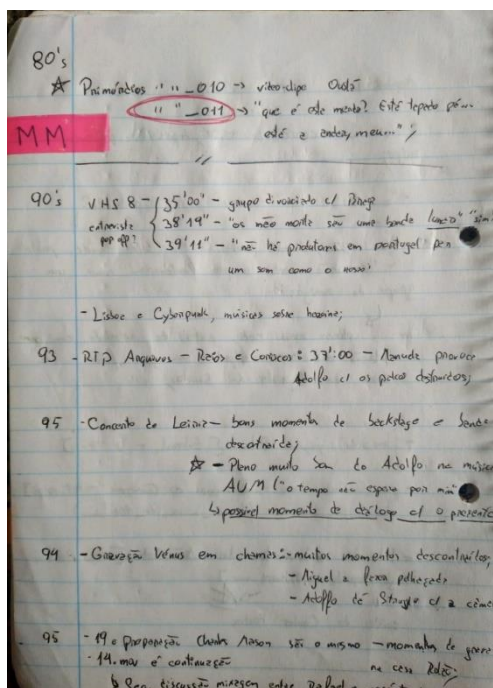 80's
☆ Primórdios " " _010 → video-clipe
" " _011 → "que é este mento? Está tepedo
está a ander, meu...";
MM
90's
VHS 8 - 35'00" - grupo divorciado c/ Braga
entreviste 38'19" - "os mão morte são uma bande
pop off? 39'11" - "não há produtores em portugal
um som como o nosso"
- Lisboa e Cyberpunk, músicas sobre
93 - RTP Arquivos - Raios e Coriscos: 37':00 - Manuela
Adolfo c/ os pretos
95 - Concerto de Leiria - bons momentos de backstage e bande
descontraída;
☆ - Pleno muito bom do Adolfo na música
AUM ("o tempo não espera por mim"
↳ possível momento de diálogo c/ o presente
94 - Gravação Vénus em chamas: - muitos momentos descontraídos,
- Miguel a fazer palhaçada
- Adolfo de c/ a
95 - 19 e Charles Manson são o mesmo - momentos de
- 14.mov é continuação na casa
discussão entre Rafael